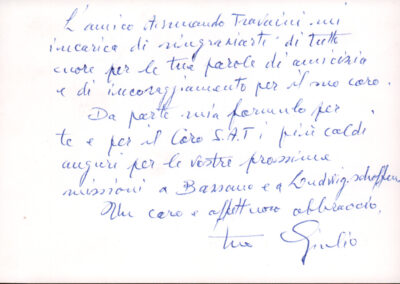 L'amico Armando Travaini mi
incarica di ringraziarti di tutto
cuore per le tue parole di amicizia
e di incoraggiamento per il suo coro.
Da parte mia formulo per
te e per il Coro S.A.T i più caldi
auguri per le vostre prossime
missioni a Bassano e a Ludwigschaffen
Un caro e affettuoso abbraccio.
tuo Giulio